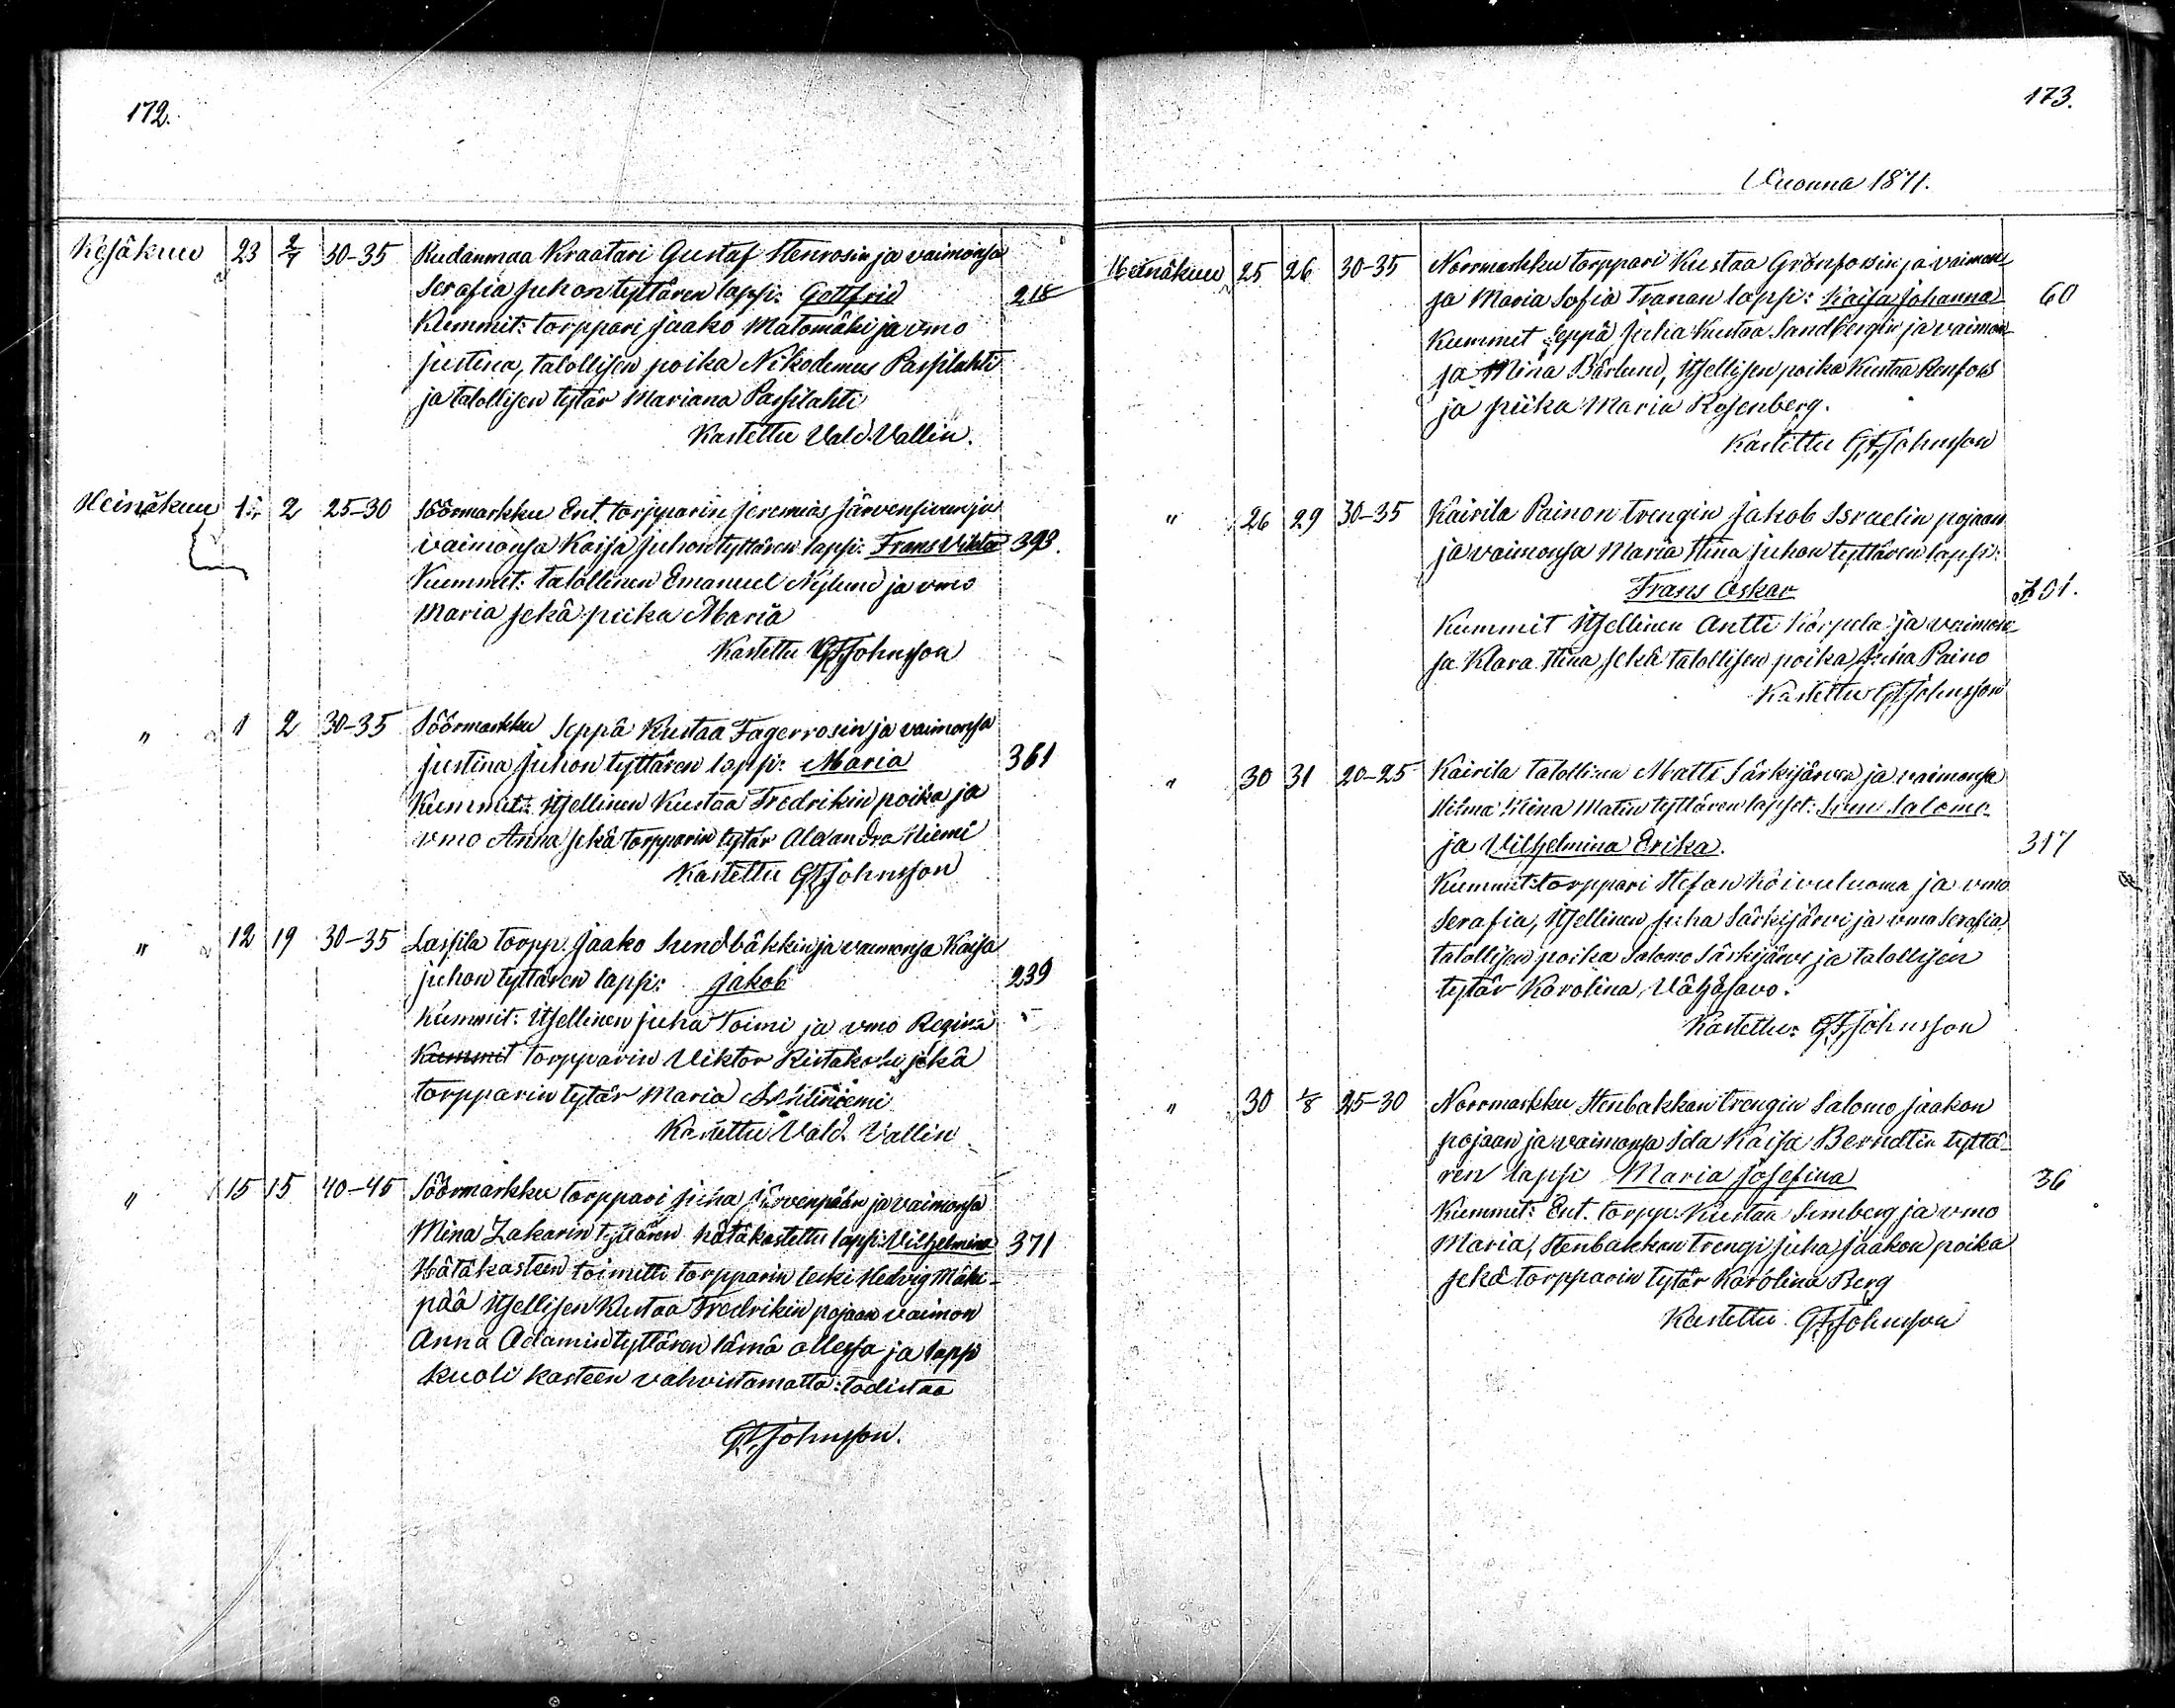 172.
Kesäkuu 23 2/7 30-35 Kudanmaa Kraatari Gustaf Stenrosin ja vaimonsa
Serafia Juhon tyttären lapsi: Gottfrid 218
Kummit: torppari Jaako Matomäki ja vmo
Justina, talollisen poika Nikodemus Passilahti
ja talollisen tytär Mariana Passilahti
Kastettu Vald. Vallin.
Heinäkuu 1 2 25-30 Söörmarkku Ent. torpparin Jeremias Järvensivun ja
vaimonsa Kaisa Juhontyttären lapsi: Frans Viktor 393.
Kummit: talollinen Emanuel Nylund ja vmo
Maria sekä piika Maria
Kastettu G.F. Johnsson
" 1 2 30-35 Söörmarkku Seppä Kustaa Fagerrosin ja vaimonsa
Justina Juhon tyttären lapsi: Maria 361
Kummit: Itsellinen Kustaa Fredrikin poika ja
vmo Anna sekä torpparin tytär Alexandra Niemi
Kastettu G.F. Johnsson
" 12 19 30-35 Lassila torpp. Jaako Sundbäkkin ja vaimonsa Kaisa
Juhon tyttären lapsi: Jakob 239
Kummit: Itsellinen Juha Toimi ja vmo Regina
Kummit torpparin Viktor Ristakoski sekä
torpparin tytär Maria
Kastettu Vald. Vallin
" 15 15 40-45 Söörmarkku torppari Juha Järvenpään ja vaimonsa
Mina Zakarin tyttären hätäkastettu lapsi: Vilhelmina 371
Hätäkasteen toimitti torpparin leski Hedvig Mäki-
pää Itsellisen Kustaa Fredrikin pojaan vaimon
Anna Adamin tyttären läsnä ollessa ja lapsi
kuoli kasteen vahvistamatta: todistaa
G.F. Johnsson.
173.
Vuonna 1871.
Heinäkuu 25 26 30-35 Norrmarkku torppari Kustaa Grönforsin ja vaimon-
sa Maria Sofia Franan lapsi: Kaisa Johanna 60
Kummit Seppä Juha Kustaa Sandbergin ja vaimon-
sa Mina Bärlund, Itsellisen poika Kustaa Renfors
ja piika Maria Rosenberg.
Kastettu G.F. Johnsson
" 26 29 30-35 Kairila Painon trengin Jakob Israelin pojaan
ja vaimonsa Maria Stina Juhon tyttären lapsi:
Frans Oskar 301.
Kummit Itsellinen Antti Korpela ja vaimon-
sa Klara Stina, sekä talollisen poika Juha Paino
Kastettu G.F. Johnsson
" 30 31 20-25 Kairila talollinen Matti Särkijärven ja vaimonsa
Hilma Stina Matin tyttären lapset: Salomo
ja Vilhelmina Erika. 317
Kummit: torppari Stefan Koivuluoma ja vmo
Serafia, Itsellinen Juha Särkijärvi ja vmo Serafia
talollisen poika Salomo Särkijärvi ja talollisen
tytär Karolina Vähäsavo.
Kastettu: G.F. Johnsson
" 30 1/8 25-30 Norrmarkku Stenbakkan trengin Salomo Jaakon
pojaan ja vaimonsa Ida Kaisa Berndtin tyttä-
ren lapsi Maria Josefina 36
Kummit: Ent. torpp. Kustaa Semberg ja vmo
Maria, Stenbakkan trengi Juha Jaakon poika
sekä torpparin tytär Karolina Berg
Kastettu G.F. Johnsson